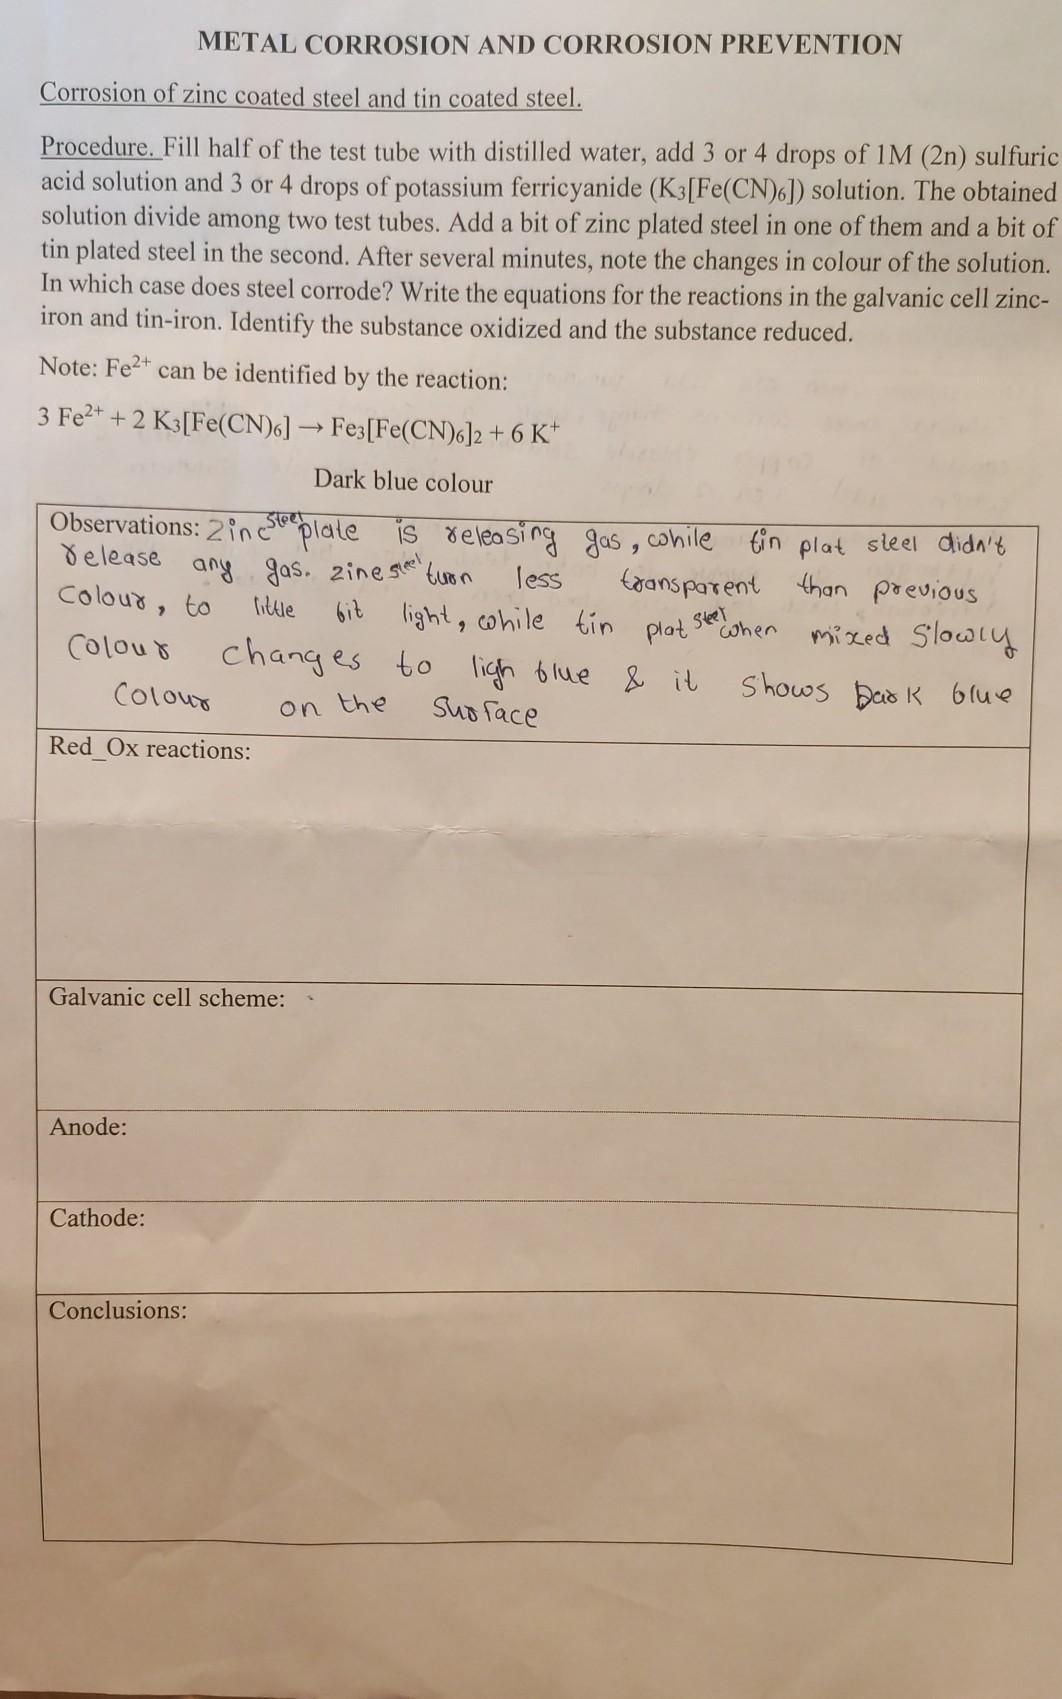 METAL CORROSION AND CORROSION PREVENTION
Corrosion of zinc coated steel and tin coated steel.
Procedure. Fill half of the test tube with distilled water, add 3 or 4 drops of 1M (2n) sulfuric
acid solution and 3 or 4 drops of potassium ferricyanide (K3[Fe(CN)6]) solution. The obtained
solution divide among two test tubes. Add a bit of zinc plated steel in one of them and a bit of
tin plated steel in the second. After several minutes, note the changes in colour of the solution.
In which case does steel corrode? Write the equations for the reactions in the galvanic cell zinc-
iron and tin-iron. Identify the substance oxidized and the substance reduced.
Note: Fe²⁺ can be identified by the reaction:
3 Fe²⁺ + 2 K₃[Fe(CN)₆] → Fe₃[Fe(CN)₆]₂ + 6 K⁺
Dark blue colour
Observations: Zinc steel plate is releasing gas, while tin plat steel didn't
release any gas. zine steel turn less transparent than previous
Colour, to little bit light, while tin plat steel when mixed Slowly
Colour changes to ligh blue & it shows Dark blue
Colour on the Surface
Red_Ox reactions:
Galvanic cell scheme:
Anode:
Cathode:
Conclusions: